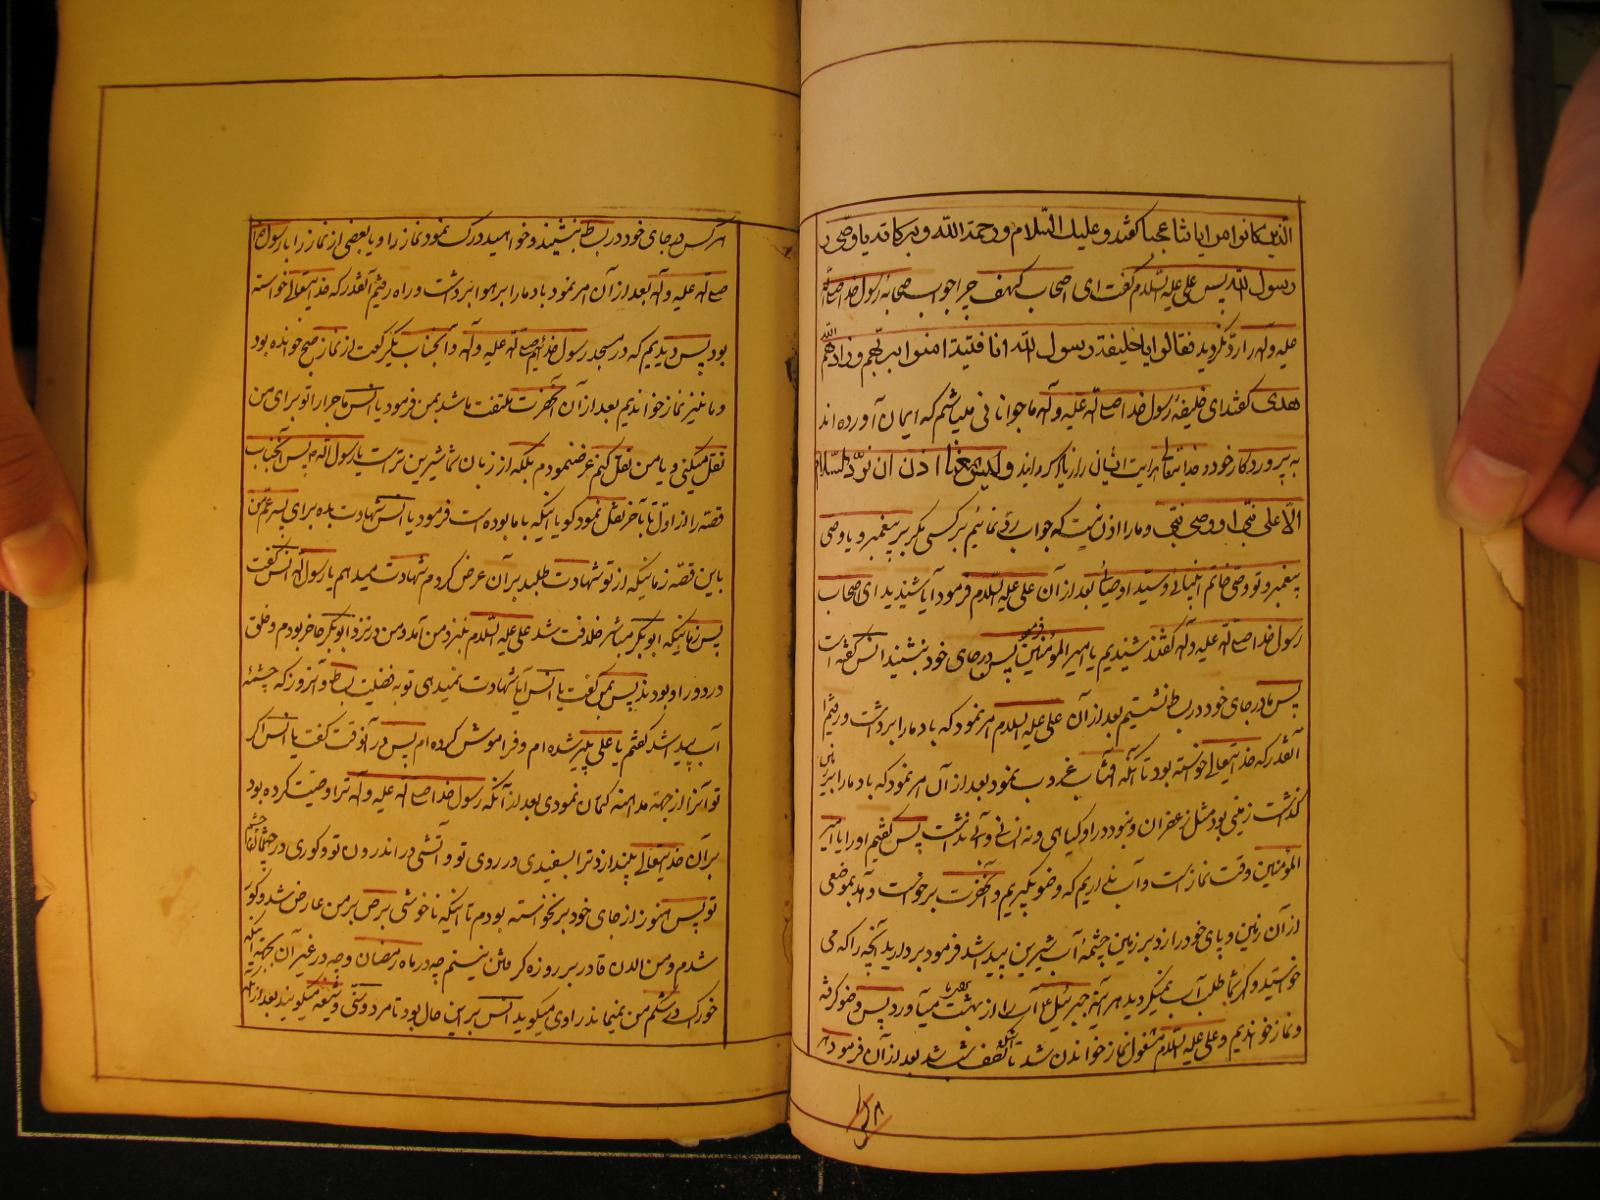 الذین کانوا من ایاتنا عجبا کفتند و علیک السّلام و رحمة اللّه و برکاته یا وصّی ر
رسول اللّه پس علی علیه السّلام گفت ای اصحاب کهف چرا جواب صحابهٔ رسول خدا صلّی اللّه
علیه و آله را رد نکردید فقالوا یا خلیفة رسول اللّه انا فتیة امنوا بربهم و زادهم اللّه
هدی کفتند ای خلیفهٔ رسول خدا صلی اللّه علیه و آله ما جوانانی میباشیم که ایمان آورده اند
به پروردکار خود و خدایتعالی هدایت ایشان را زیاد کردانید و لیس معنا اذن ان نردّ السّلام
الّا علی نبّی او وصی نبّی و ما را اذن نیست که جواب ردّ نمائیم بر کسی مکر بر پیغمبر و یا وصی
پیغمبر و تو وصّی خاتم انبیائی و سیّد اوصیائی بعد از آن علی علیه السّلام فرمود آیا شنیدید ای اصحاب
رسول خدا صلی اللّه علیه و آله کفتند شنیدیم یا امیر المؤمنین فرمود پس در جای خود بنشینید انس کفته است
پس ما در جای خود در بساط نشستیم بعد از آن علی علیه السلام امر نمود که باد ما را برداشت و رفتیم تا
آنقدر که خدایتعالی خواسته بود تا آنکه آفتاب غروب نمود بعد از آن امر نمود که باد ما را بر زمین
کذاشت زمینی بود مثل زعفران و نبود در او کیاهی و نه انسانی و آبی نداشت پس کفتیم او را یا امیر
المؤمنین وقت نماز است و آب نداریم که وضو بکیریم و آنحضرت برخواست و آمد بموضعی
از آن زمین و پای خود را زد بر زمین چشمهٔ آب شیرین پیدا شد فرمود بردارید آنچه را که می
خواستید و اکر شما طلب آب نمیکردید هر آینه جبرئیل آب را از بهشت میآورد پس وضو کرفته
و نماز خواندیم و علی علیه السّلام مشغول نماز خواندن شد تا آنکه نصف شب شد بعد از آن فرمود
هر کس در جای خود در بساط بنشیند و خواهید درک نمود نماز را و یا بعضی از نماز را با رسول خدا
صلی اللّه علیه و آله بعد از آن امر نمود باد ما را بر هوا برداشت و راه رفتیم آنقدر که خدایتعالی خواسته
بود پس دیدیم که در مسجد رسول خدائیم صلی اللّه علیه و آله و آنجناب یکرکعت از نماز صبح خوانده بود
و ما نیز نماز خواندیم بعد از آن آنحضرت ملتفت ما شد بمن فرمود یا انس ماجرا را تو برای من
نقل میکنی و یا من نقل کنم عرض نمودم بلکه از زبان شما شیرین تر است یا رسول اللّه پس آنجناب
قصّه را از اوّل تا بآخر نقل نمود کویا اینکه با ما بوده است فرمود یا انس شهادت بده برای پسر عمّ من
باین قصّه زمانیکه از تو شهادت طلبد بر آن عرض کردم شهادت میدهم یا رسول اللّه انس کفت
پس زمانیکه ابو بکر مباشر خلافت شد علی علیه السّلام بنزد من آمد و من در نزد ابو بکر حاضر بودم و خلق
در دور او بودند پس بمن کفت یا انس آیا شهادت نمیدهی تو به فضیلت بساط و آنروز که چشمهٔ
آب پیدا شد کفتم یا علی پیر شده ام و فراموش کرده ام پس در آنوقت کفت یا انس اکر
تو آنرا از جهة مداهنه کتمان نمودی بعد از آنکه رسول خدا صلی اللّه علیه و آله ترا وصّیت کرده بود
بر آن خدایتعالی بیندازد ترا بسفیدی در روی تو و آتشی در اندرون تو و کوری در چشمهای
تو پس هنوز از جای خود برنخواسته بودم تا اینکه ناخوشی برص بر من عارض شد و کور
شدم و من الان قادر بر روزه کرفتن نیستم چه در ماه رمضان و چه در غیر آن بجهة اینکه
خوراک در شکم من نمیماند راوی میکوید انس بر این حال بود تا مرد و سنّی و شیعه میکویند بعد از